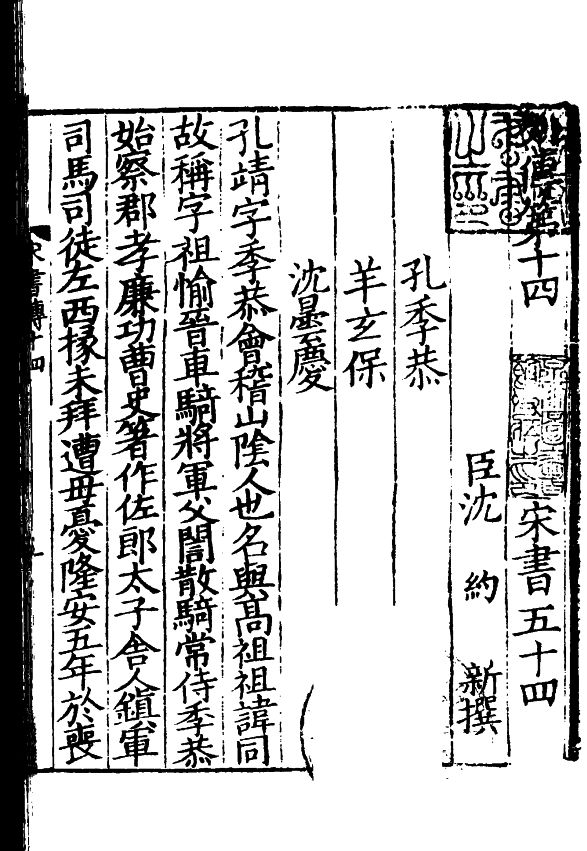 列傳第十四 宋書五十四
臣沈 約 新撰
孔季恭
羊玄保
沈曇慶
孔靖字季恭會稽山陰人也名與高祖祖諱同
故稱字祖愉晉車騎將軍父誾散騎常侍季恭
始察郡孝廉功曹史著作佐郎太子舍人鎮軍
司馬司徒左西掾未拜遭母憂隆安五年於喪
宋書傳十四